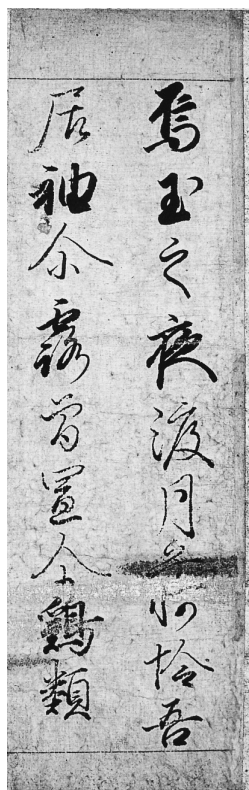 烏玉之夜渡月乎何怜吾
居袖尒露曽置尒鶏類